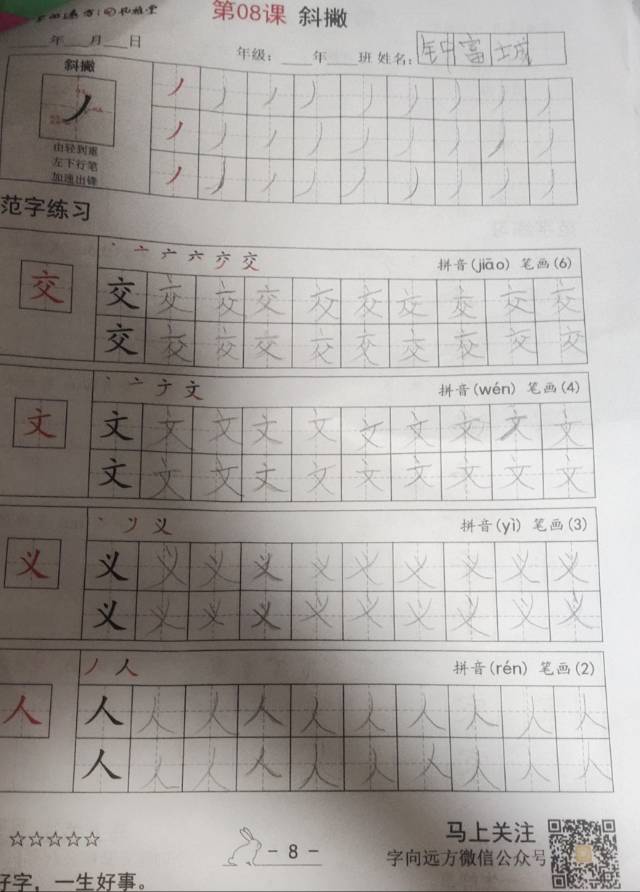 第08课 斜撇
年 月 日
年级： 年 班 姓名：钟富城
斜撇
由轻到重
左下行笔
加速出锋
范字练习
拼音(jiāo) 笔画(6)
交 交 交 交 交 交 交 交 交 交 交
交 交 交 交 交 交 交 交 交 交
拼音(wén) 笔画(4)
文 文 文 文 文 文 文 文 文 文 文
文 文 文 文 文 文 文 文 文 文
拼音(yì) 笔画(3)
义 义 义 义 义 义 义 义 义 义 义
义 义 义 义 义 义 义 义 义 义
拼音(rén) 笔画(2)
人 人 人 人 人 人 人 人 人 人 人
人 人 人 人 人 人 人 人 人 人
☆☆☆☆☆
- 8 -
马上关注
字向远方微信公众号
好字，一生好事。